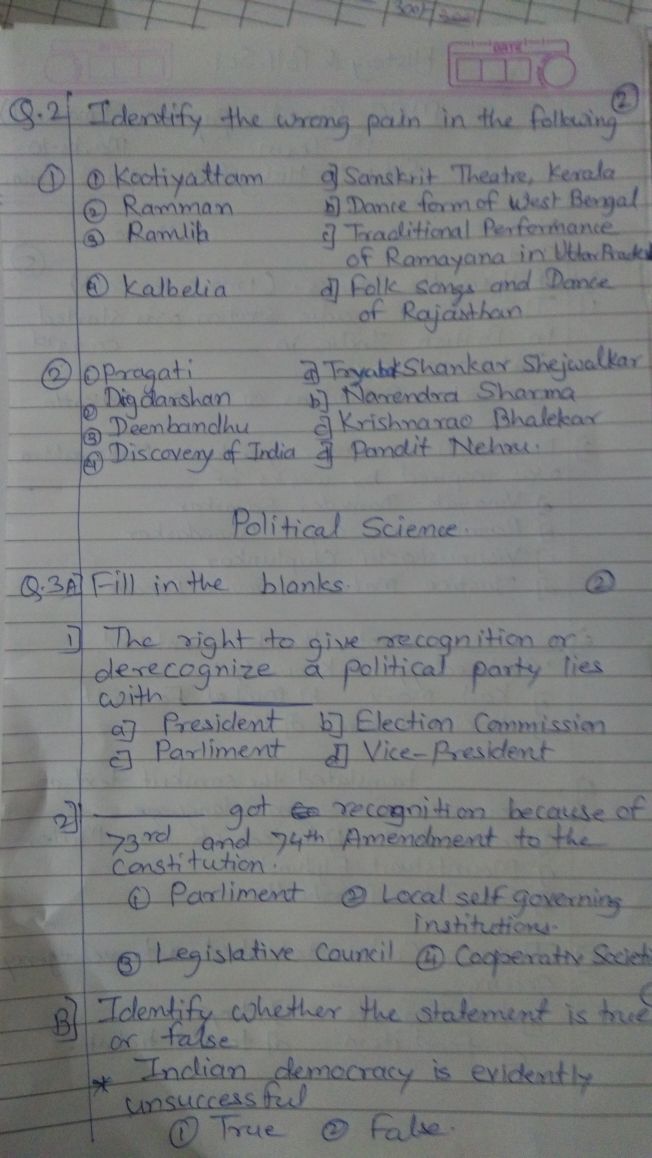 DATE
Q.2 Identify the wrong pain in the following ②
① ① Kootiyattam a] Sanskrit Theatre, Kerala
② Ramman b] Dance form of West Bengal
③ Ramlila c] Traditional Performance
of Ramayana in Uttar Prades
④ Kalbelia d] Folk songs and Dance
of Rajasthan
② ① Pragati a] Shankar Shejwalkar
② Digdarshan b] Narendra Sharma
③ Deenbandhu c] Krishnarao Bhalekar
④ Discovery of India d] Pandit Nehru.
Political Science.
Q.3A] Fill in the blanks. ②
1] The right to give recognition or
derecognize a political party lies
with ______
a] President b] Election Commission
c] Parliment d] Vice-President
2] ______ got recognition because of
73rd and 74th Amendment to the
constitution.
① Parliment ② Local self governing
institutions.
③ Legislative Council ④ Cooperative Societi
B] Identify whether the statement is true
or false
* Indian democracy is evidently
unsuccessful
① True ② False.